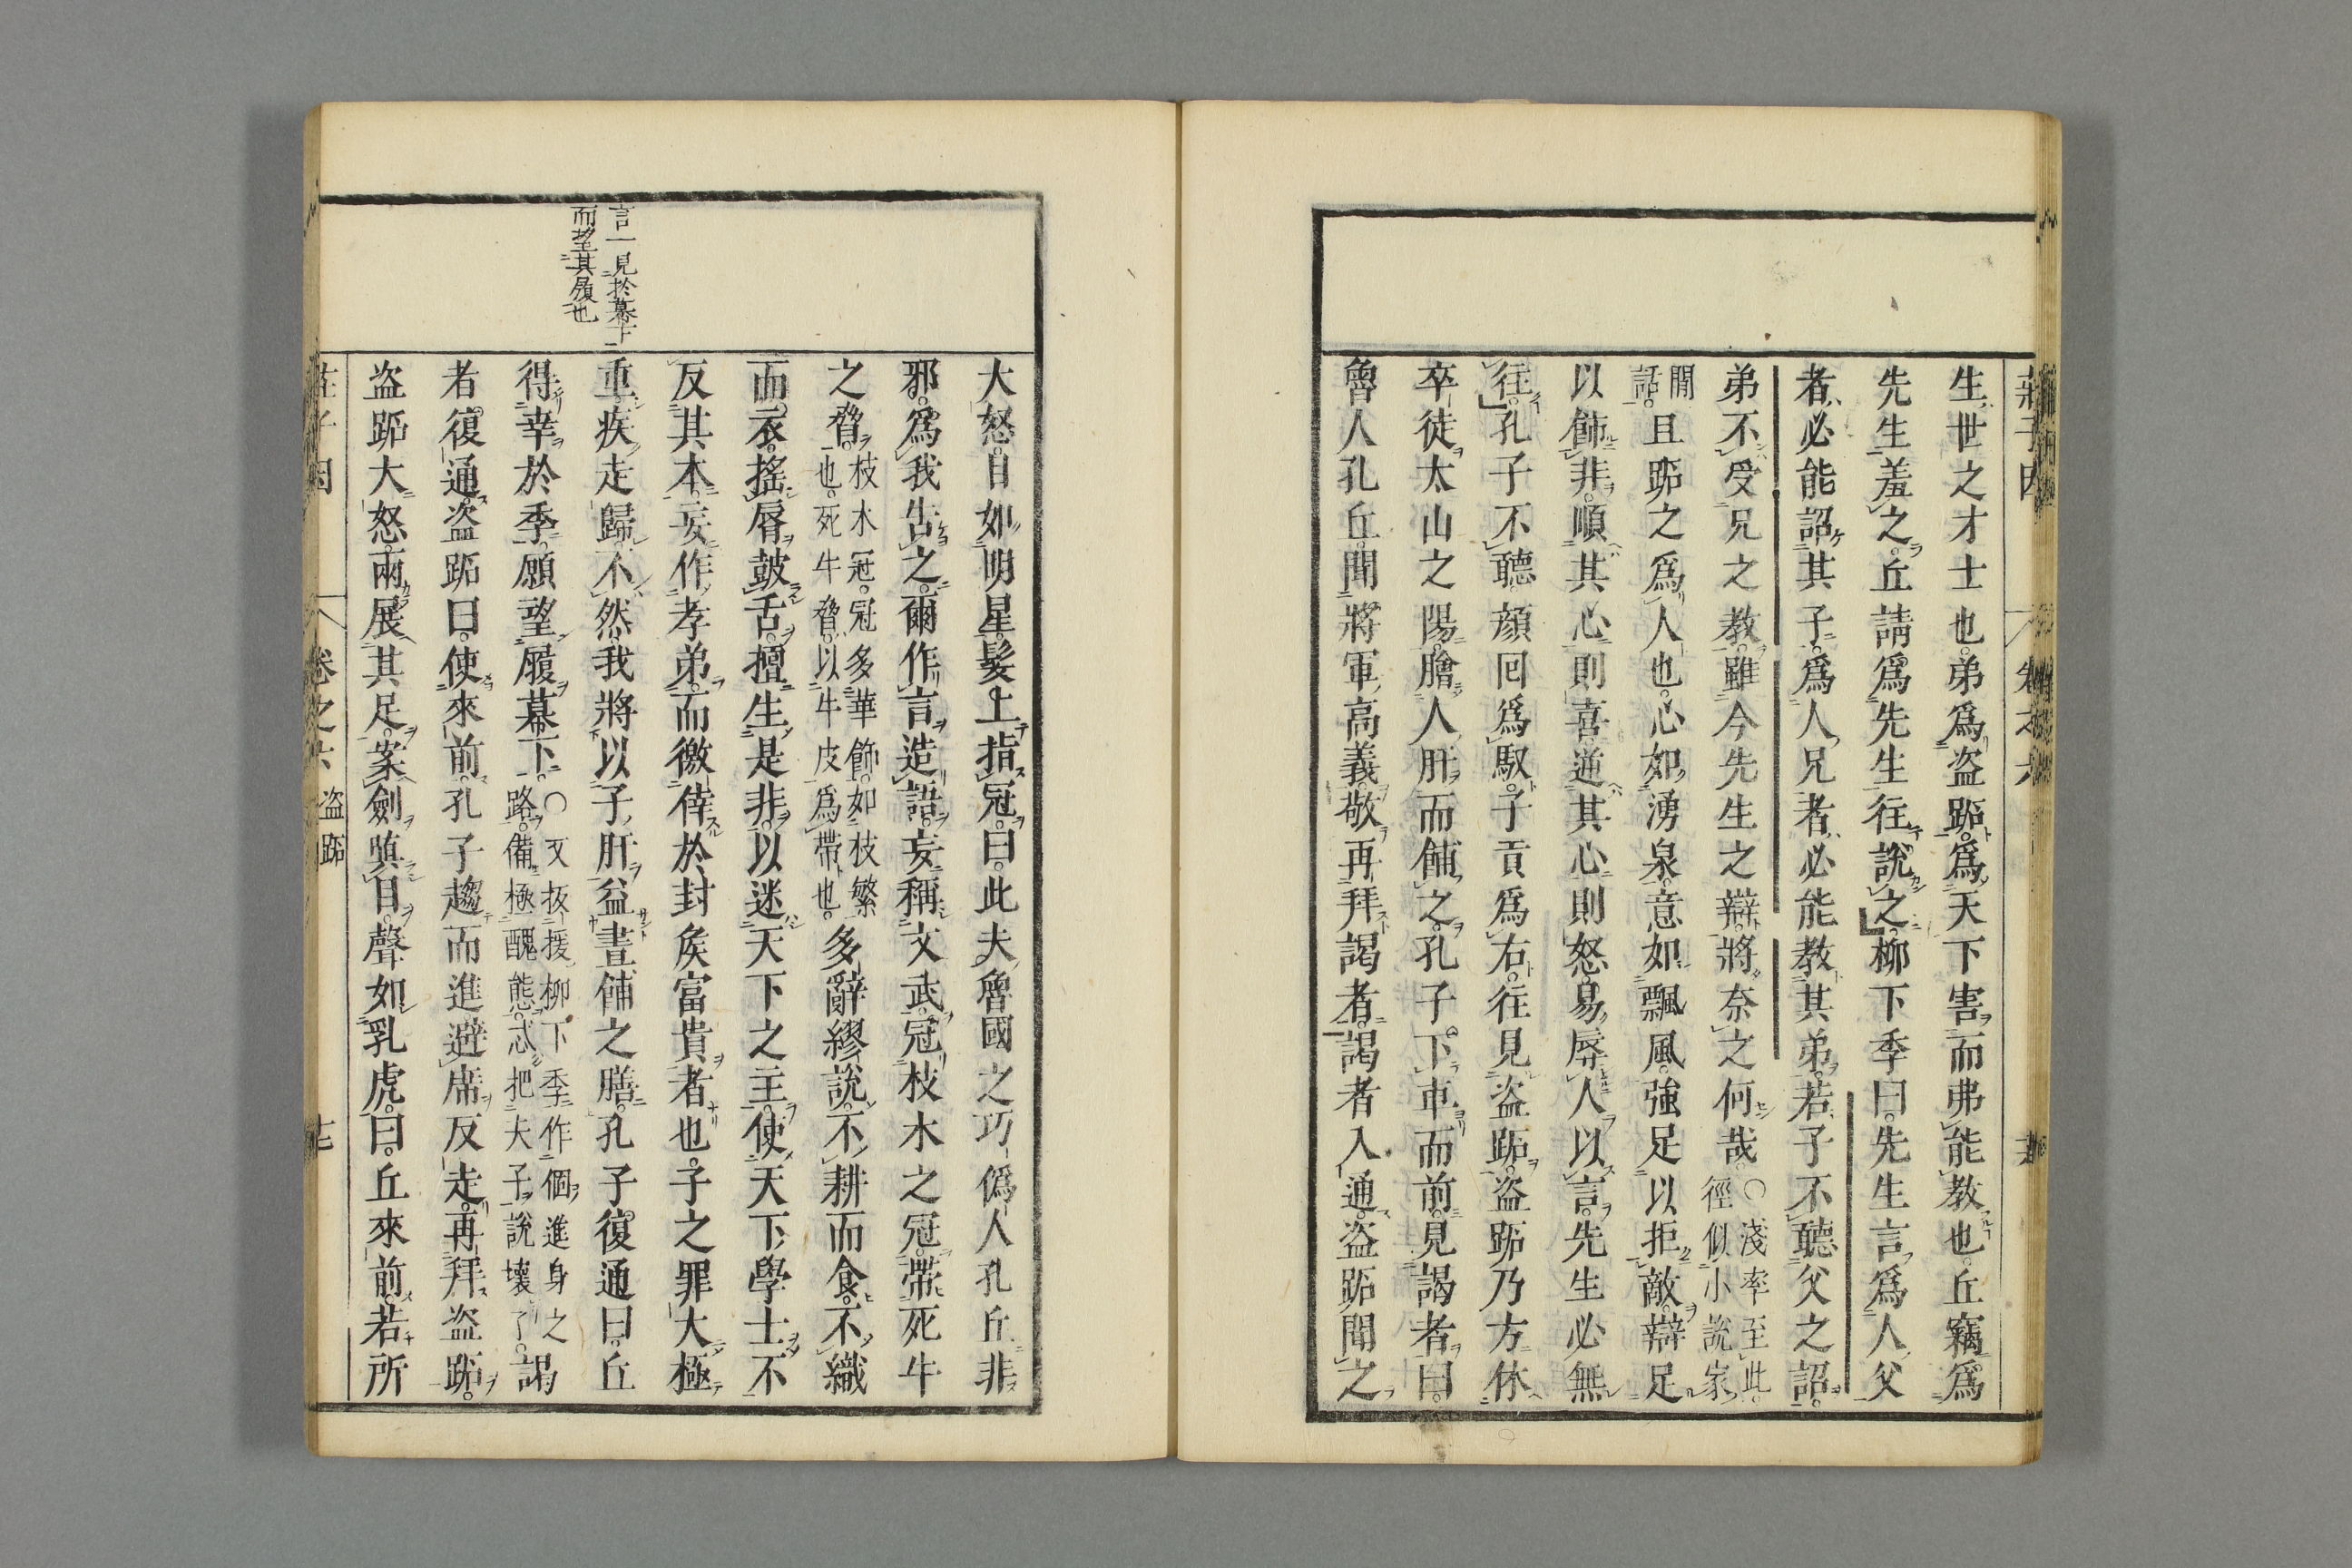 生世之才士也弟爲盜跖爲天下害而弗能教也丘竊爲
先生羞之丘請爲先生往說之柳下季曰先生言爲人父
者必能詔其子爲人兄者必能教其弟若子不聽父之詔
弟不受兄之教雖今先生之辯將奈之何哉
〇淺率至此
徑似小說家
閒
話
且跖之爲人也心如湧泉意如飄風強足以拒敵辯足
以飾非順其心則喜逆其心則怒易辱人以言先生必無
往孔子不聽顏回爲馭子貢爲右往見盜跖盜跖乃方休
卒徒太山之陽膾人肝而餔之孔子下車而前見謁者曰
魯人孔丘聞將軍高義敬再拜謁者謁者入通盜跖聞之
言一見於幕下
而望其履也
大怒目如明星髮上指冠曰此夫魯國之巧僞人孔丘非
邪爲我告之爾作言造語妄稱文武冠枝木之冠帶死牛
之脅
枝木冠冠多華飾如枝繁
也死牛脅以牛皮爲帶也
多辭繆說不耕而食不織
而衣搖脣鼓舌擅生是非以迷天下之主使天下學士不
反其本妄作孝弟而徼倖於封矦富貴者也子之罪大極
重疾走歸不然我將以子肝益晝餔之膳孔子復通曰丘
得幸於季願望履幕下
〇又扳援柳下季作個進身之
路備極醜態忒把夫子說壞了
謁
者復通盜跖曰使來前孔子趨而進避席反走再拜盜跖
盜跖大怒兩展其足案劍瞋目聲如乳虎曰丘來前若所
莊子因
卷之六
盜跖